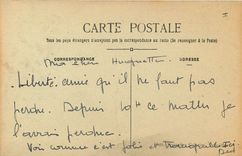 CARTE POSTALE
Tous les pays étrangers n'acceptent pas la correspondance au recto (Se renseigner à la Poste)
CORRESPONDANCE ADRESSE
Ma chère Huguette
Liberté amie qu'il ne faut pas
perdre. Depuis 10H ce matin je
l'avais perdue.
Voir comme c'est joli